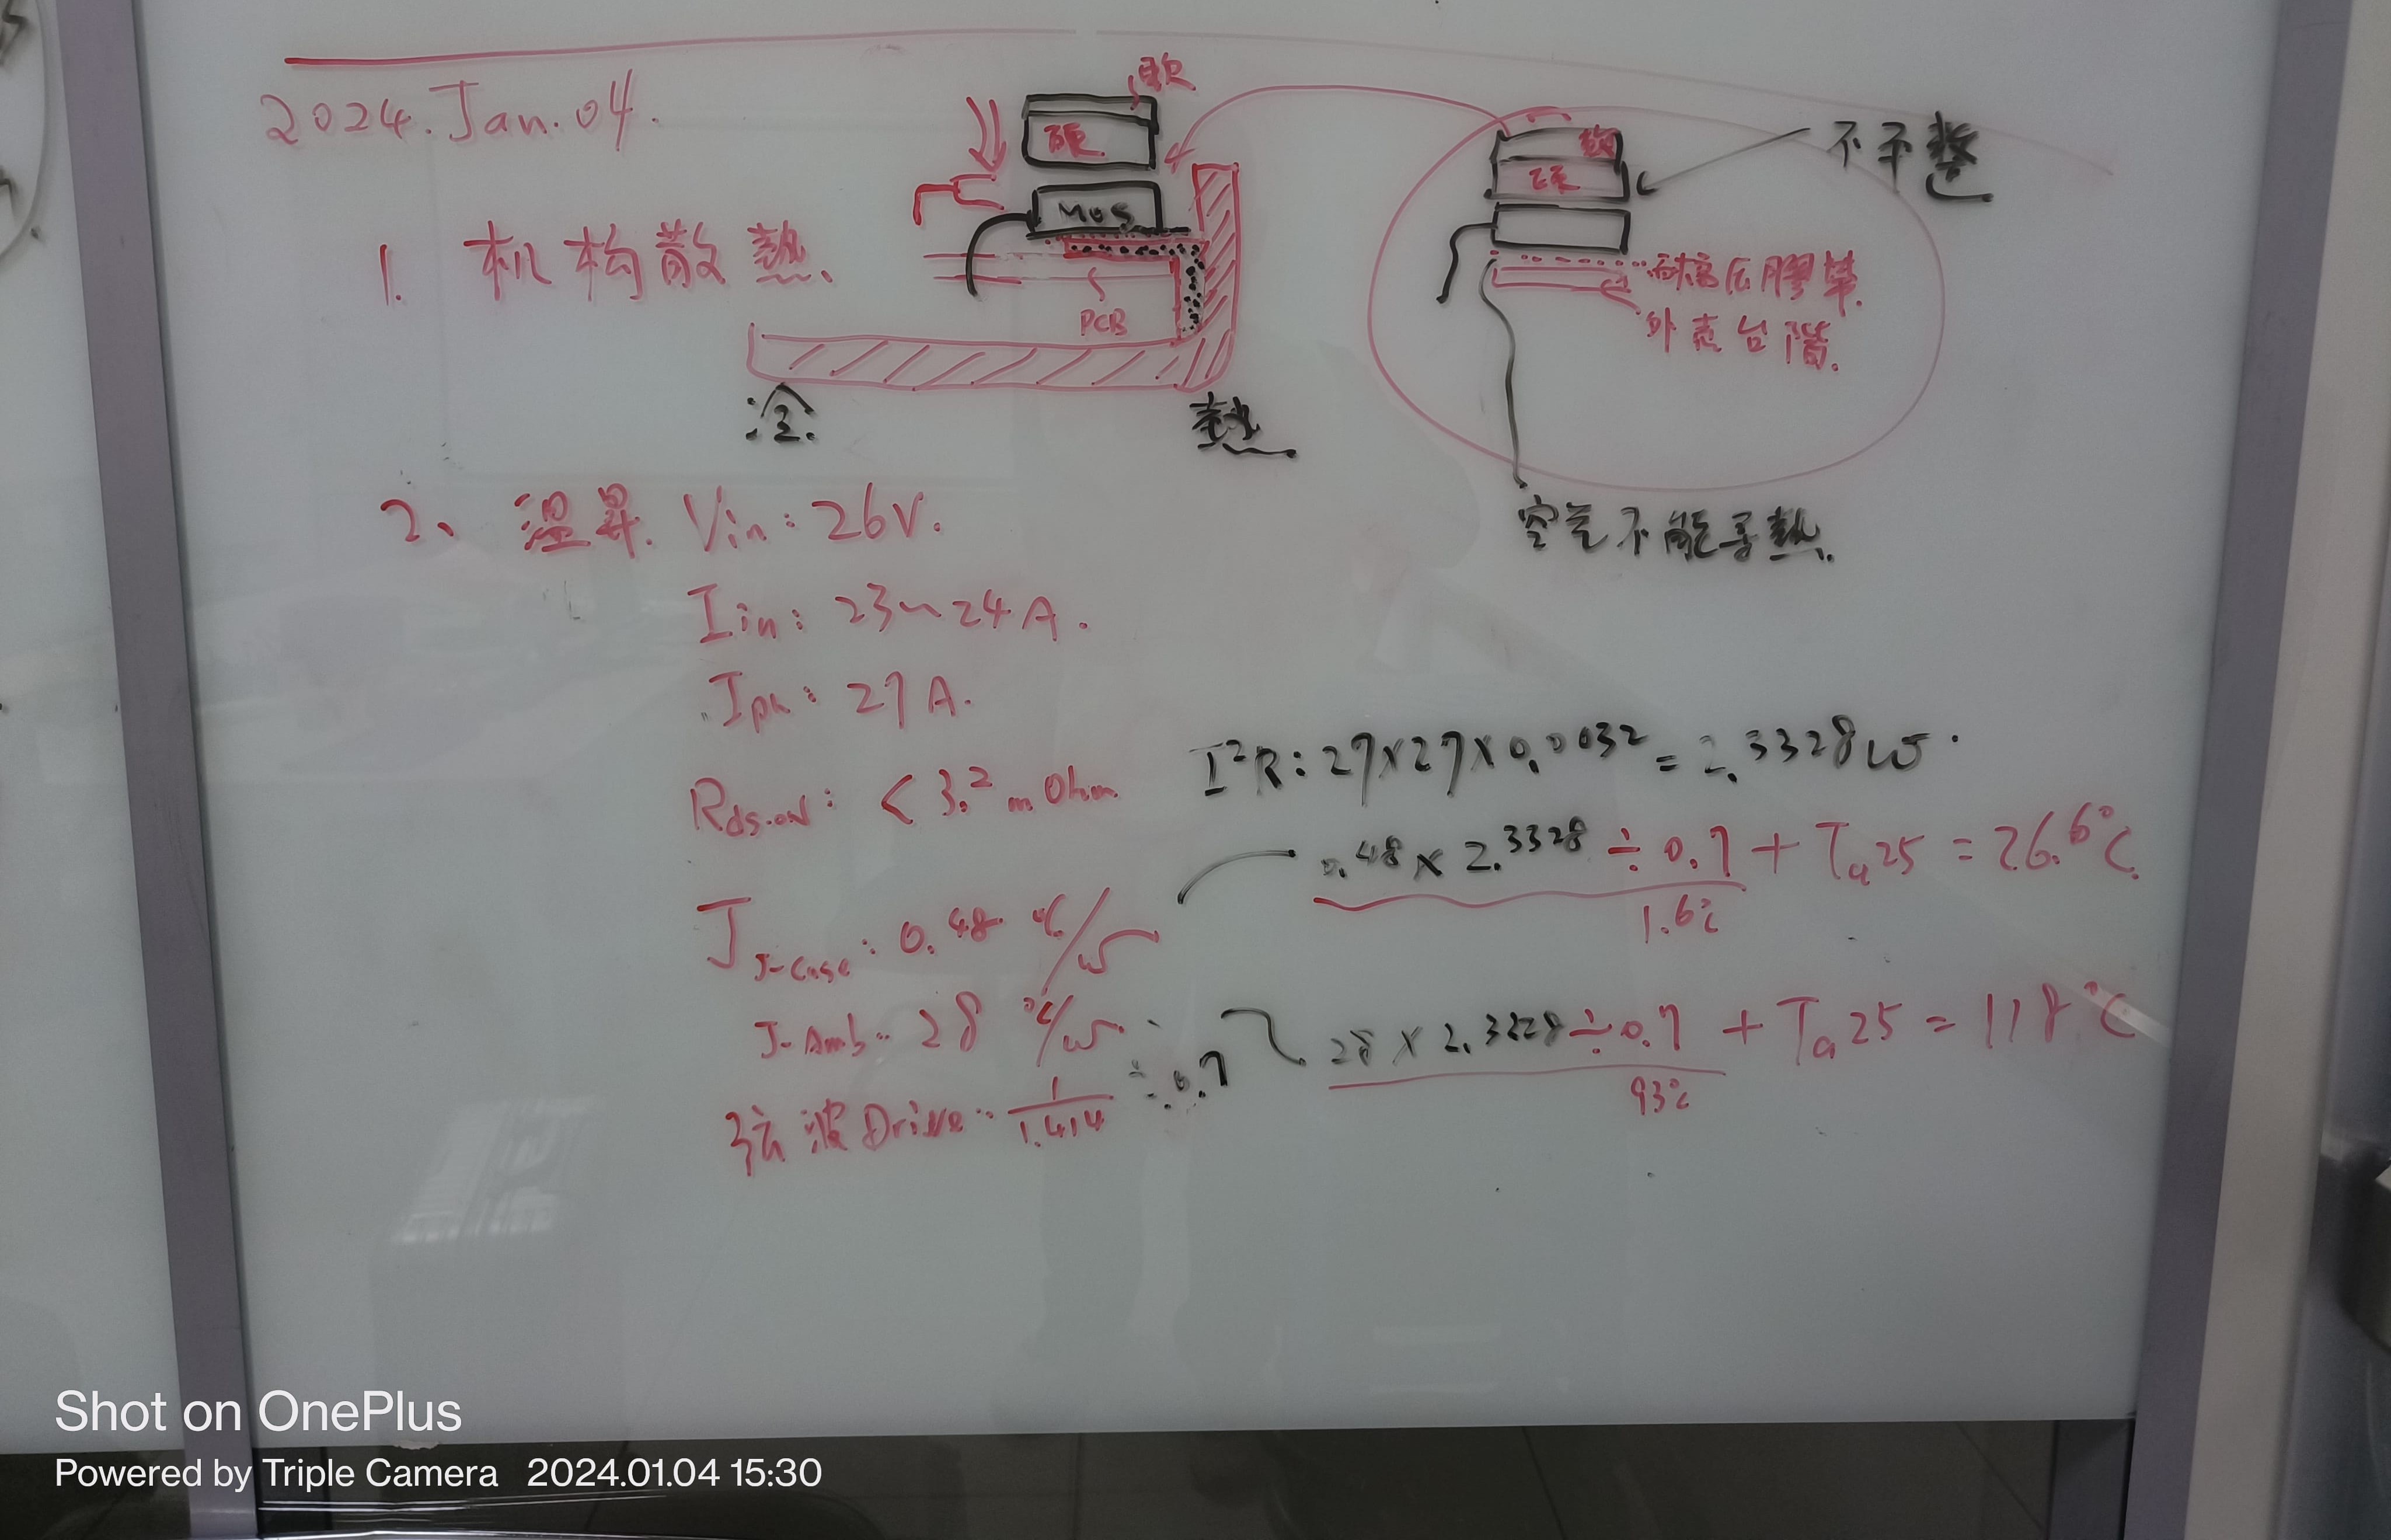 2024.Jan.04.
軟
硬
MOS
PCB
冷
熱
1. 机构散熱、
軟
硬
不平整
耐高压膠帶.
外壳台階.
空气不能导熱.
2、温昇. Vin: 26V.
Iin: 23~24A.
Ipk: 27A.
Rds.on: < 3.2 mOhm
I²R: 27x27x0.0032 = 2.3328W.
JJ-Case: 0.48 °C/W
0.48 x 2.3328 ÷ 0.7 + Ta25 = 26.6°C
1.6°C
J-Amb: 28 °C/W
28 x 2.3328 ÷ 0.7 + Ta25 = 118°C
93°C
弦波Drive: 1/1.414 ÷0.7
Shot on OnePlus
Powered by Triple Camera 2024.01.04 15:30